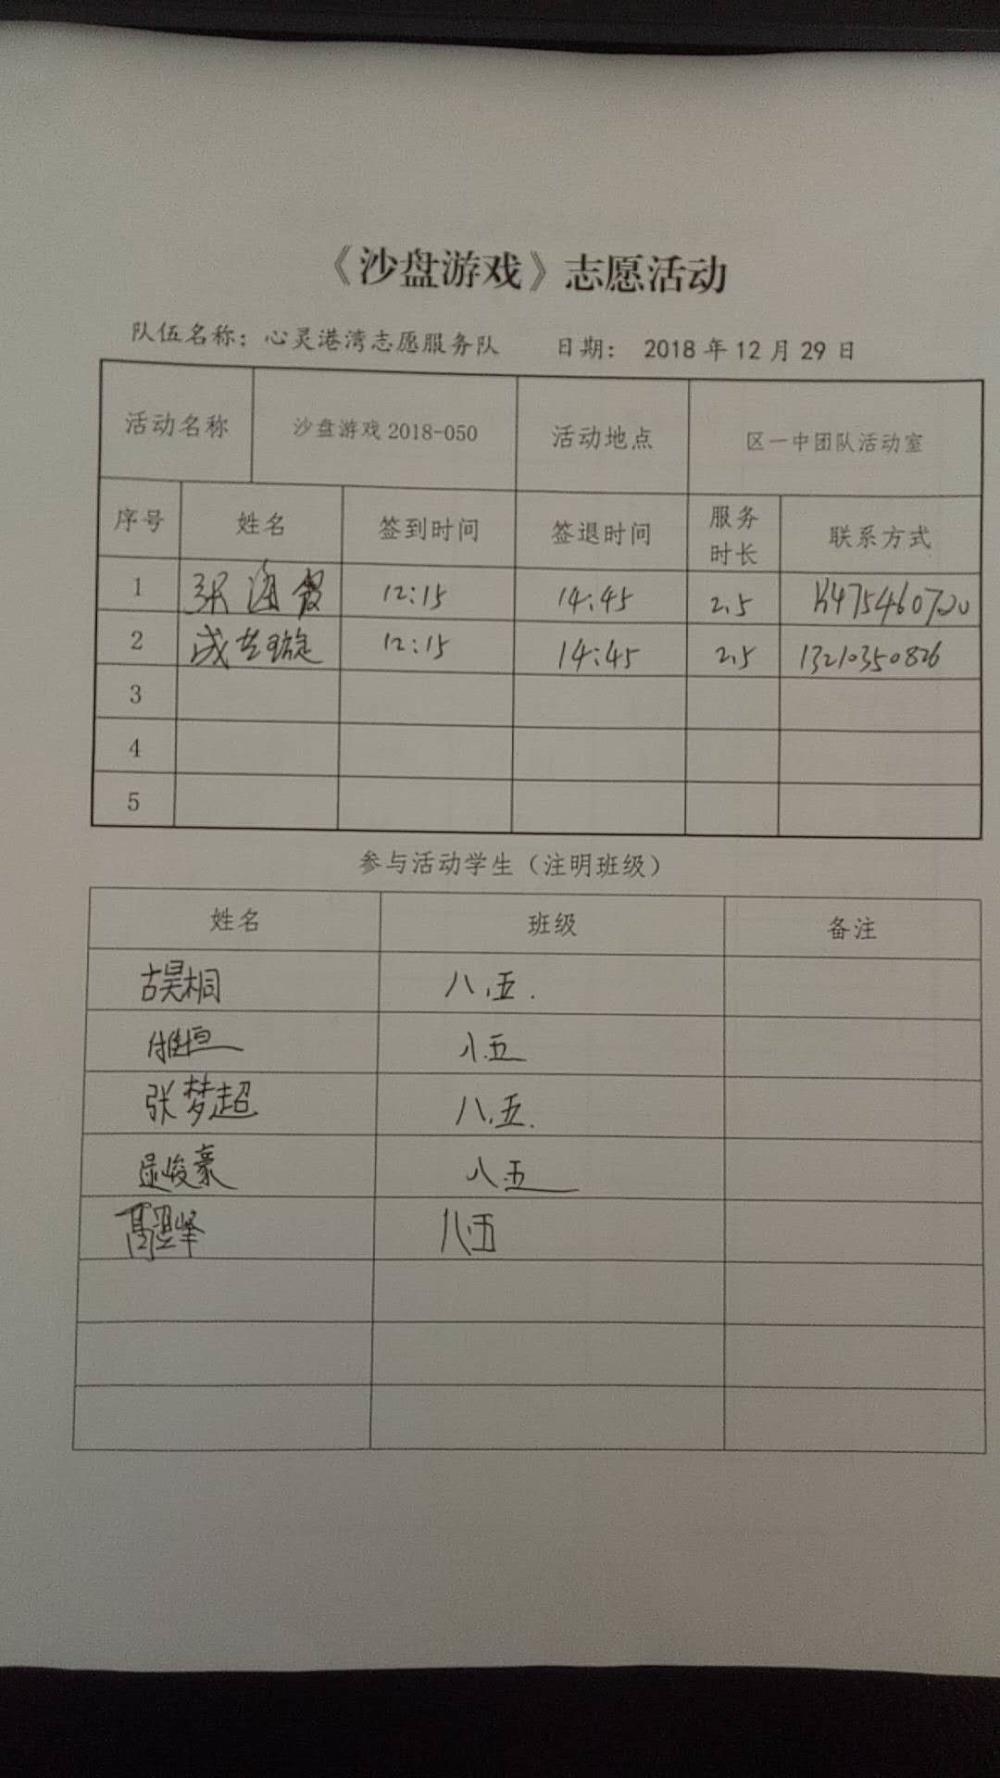 《沙盘游戏》志愿活动
队伍名称：心灵港湾志愿服务队 日期： 2018 年 12 月 29 日
活动名称 沙盘游戏 2018-050 活动地点 区一中团队活动室
序号 姓名 签到时间 签退时间 服务时长 联系方式
1 张海霞 12:15 14:45 2.5
2 12:15 14:45 2.5 13210350826
3
4
5
参与活动学生（注明班级）
姓名 班级 备注
古昊桐 八.五.
八.五
张梦超 八.五.
峻豪 八.五
高 峰 八.五